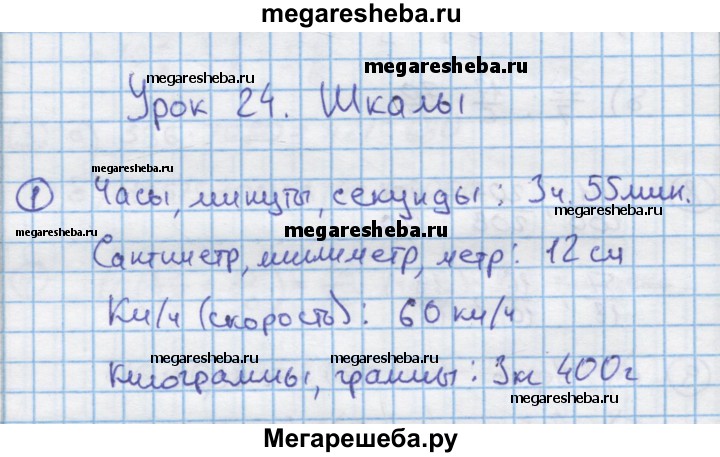 megaresheba.ru
megaresheba.ru
megaresheba.ru
Урок 24. Шкалы
megaresheba.ru
① Часы, минуты, секунды: 3ч 55мин.
megaresheba.ru
Сантиметр, милиметр, метр: 12 см
Км/ч (скорость): 60 км/ч
megaresheba.ru
megaresheba.ru
Килограммы, граммы: 3кг 400г
megaresheba.ru
Мегарешеба.ру